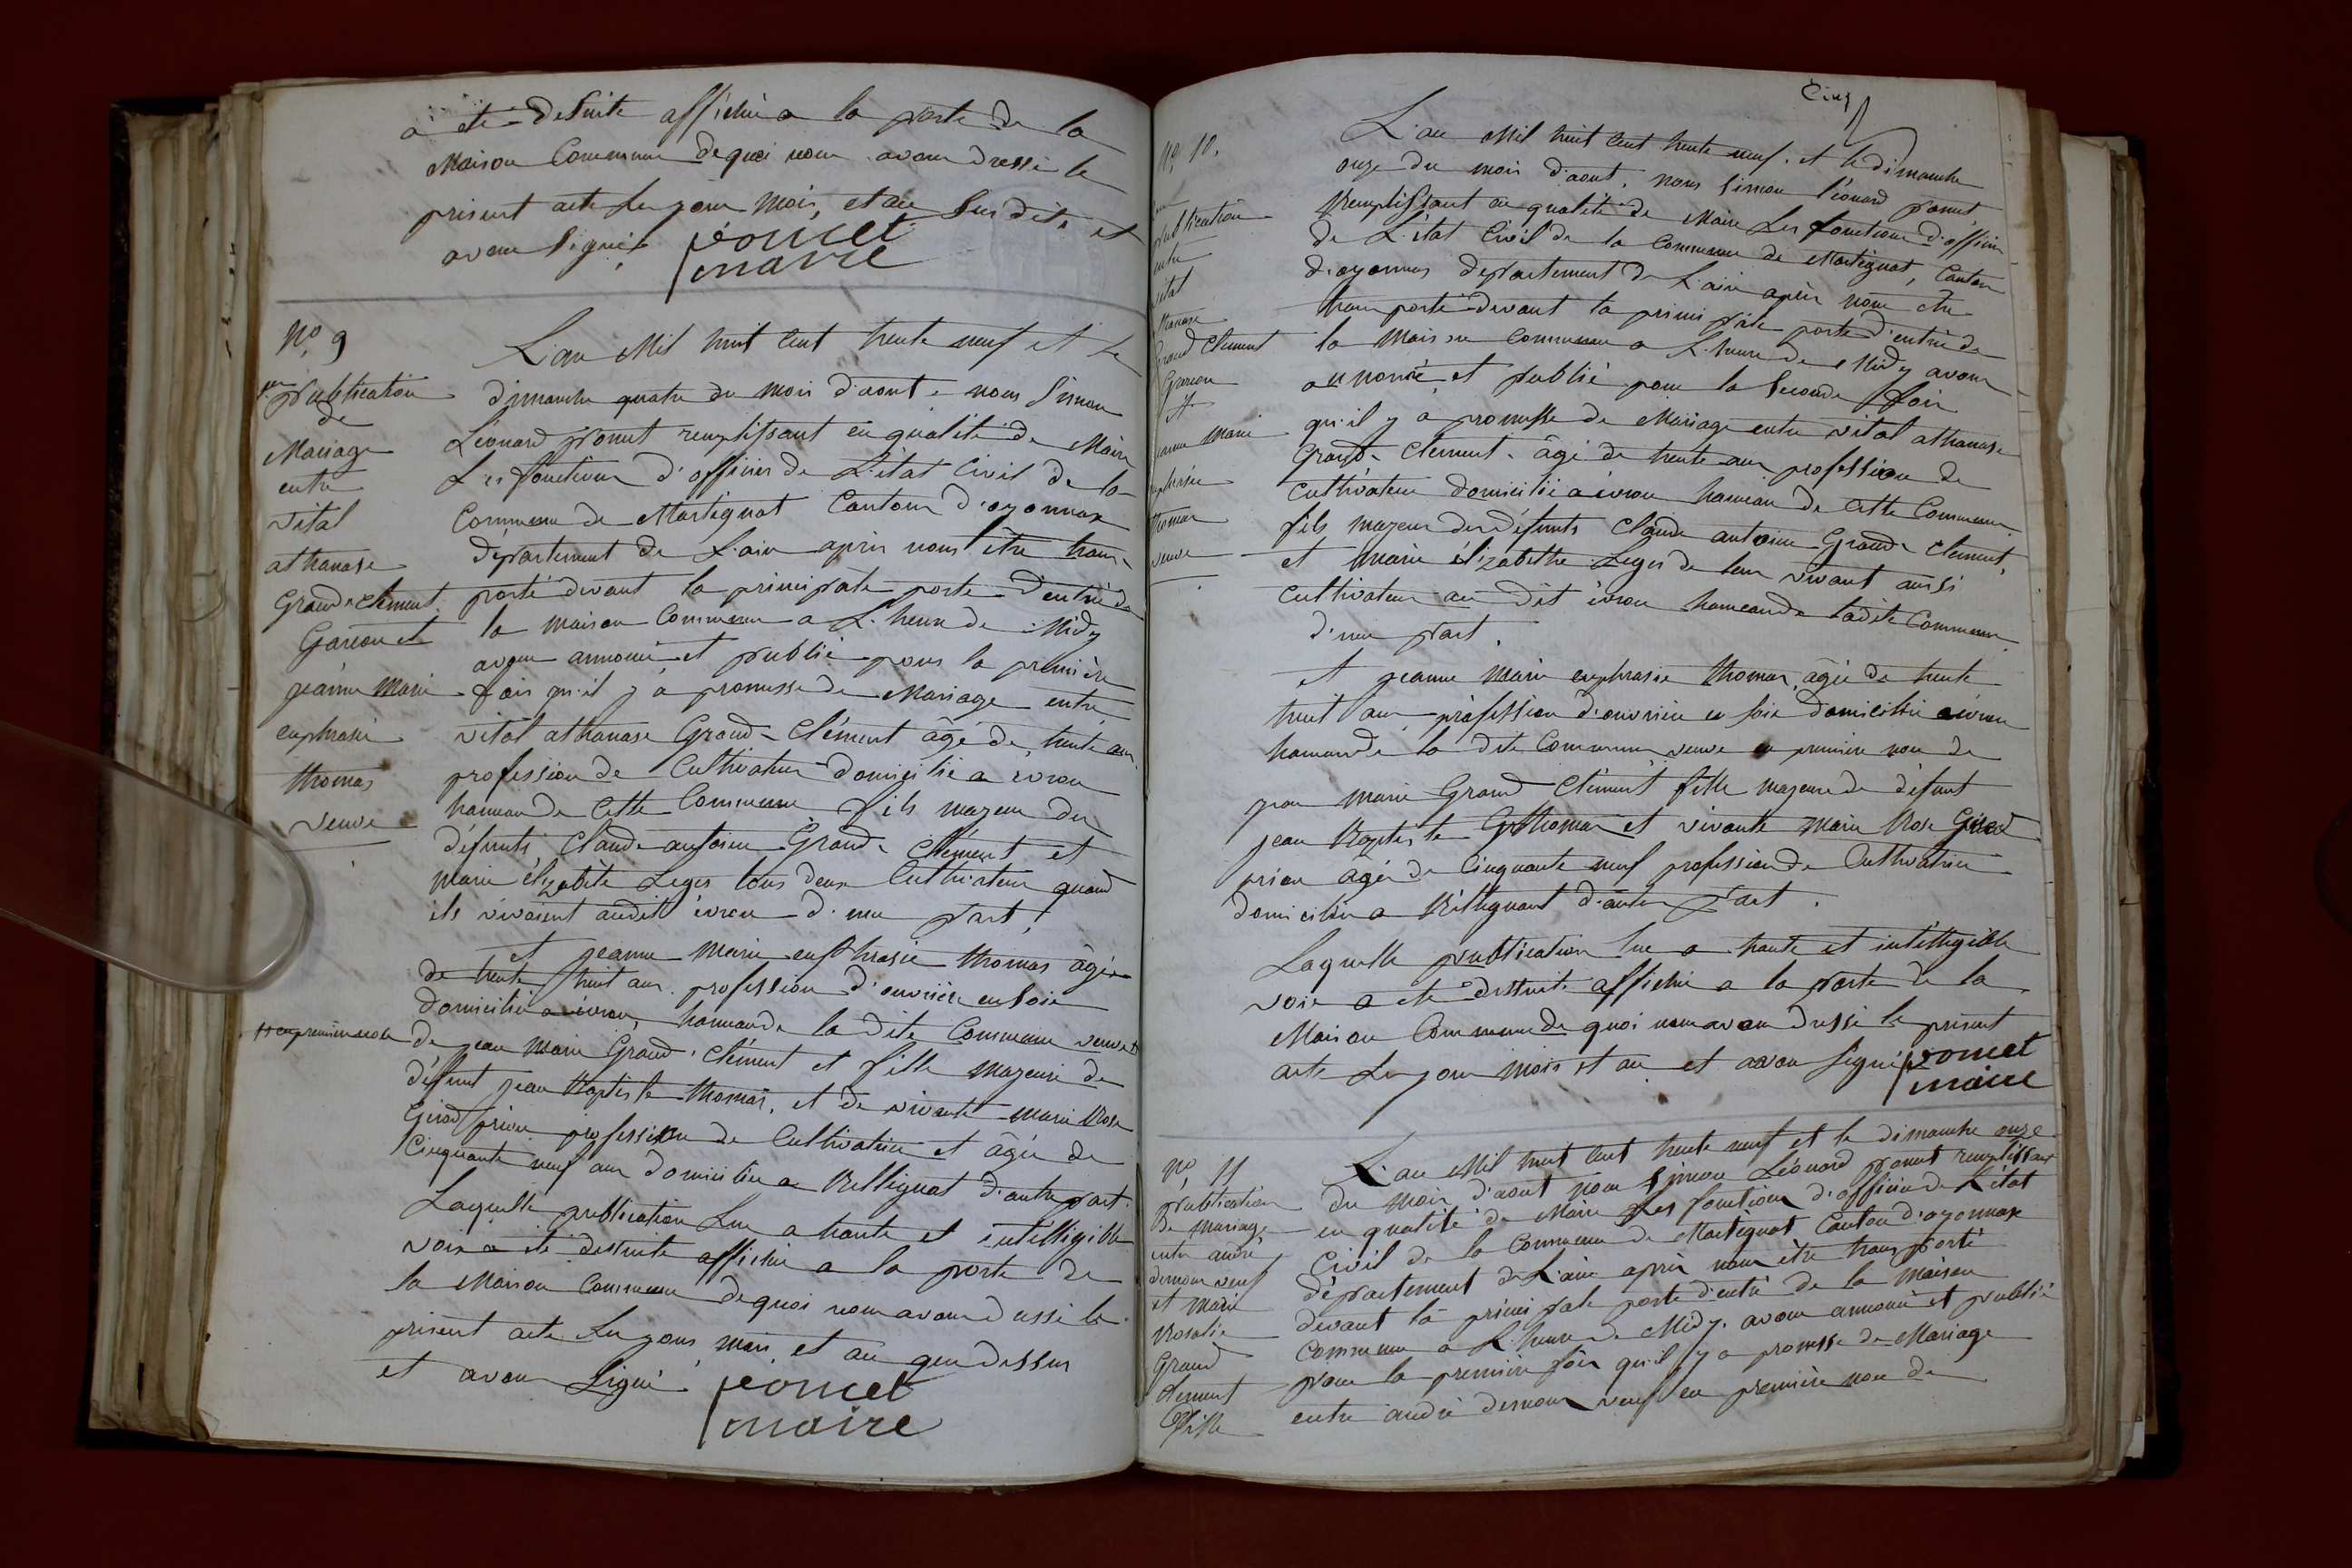 a été desuite affiché a la porte de la
Maison Commune de quoi nous avons dressé le
présent acte les jour mois, et an susdits et
avons signé.
poncet
maire
No. 9
1ère publication
de
Mariage
entre
vital
athanase
Grand-Clément
Garçon et
jeanne Marie
euphrasie
thomas
veuve
L'an Mil huit Cent trente neuf et le
dimanche quatre du mois d'aout, nous Simon
Léonard poncet remplissant en qualité de Maire
Les fonctions d'officier de L'état Civil de la
Commune de Martignat Canton d'oyonnax
département de L'ain après nous être trans-
porté devant la principale porte d'entrée de
la maison Commune a L'heure de Midy
avons annoncé et publié pour la première
fois qu'il y a promesse de Mariage entre
vital athanase Grand-Clément âgé de trente ans
profession de Cultivateur domicilié a évron
hameau de Cette Commune fils majeur des
défunts Claude antoine Grand-Clément et
marie élizabète Leger tous deux Cultivateur quand
ils vivoient audit évron d'une part;
et jeanne Marie euphrasie thomas âgée
de trente huit ans profession d'ouvrière en soie
domiciliée a évron, hameau de la dite Commune veuve
en première noce
de jean Marie Grand-Clément et fille majeure de
défunt jean Baptiste thomas, et de vivante marie Rose
Girod prieur profession de Cultivatrice et âgée de
Cinquante neuf ans domiciliée a Bellignat d'autre part.
Laquelle publication Lue a haute et intelligible
voix a été desuite affichée a la porte de
la Maison Commune de quoi nous avons dressé le
présent acte Les jour mois et an que dessus
et avons Signé
poncet
maire
Cinq
No. 10.
publication
entre
vital
athanase
Grand Clement
Garçon
et
jeanne marie
euphrasie
thomas
veuve
L'an Mil huit Cent trente neuf. et le dimanche
onze du mois d'aout, nous Simon Léonard poncet,
Remplissant en qualité de Maire Les fonctions d'officier
de L'état Civil de la Commune de Martignat, Canton
d'oyonnax département de L'ain après nous être
transporté devant la principale porte d'entrée de
la Maison Commune a L'heure de Midy avons
annoncé et publié pour la Seconde fois
qu'il y a promesse de Mariage entre vital athanase
Grand-Clement âgé de trente ans profession de
Cultivateur domicilié a évron hameau de Cette Commune
fils majeur des défunts Claude antoine Grand-Clement,
et Marie élizabethe Leger de leur vivant aussi
Cultivateur au dit évron hameau de ladite Commune
d'une part.
et jeanne Marie euphrasie thomas, âgée de trente
huit ans profession d'ouvrière en soie domiciliée a évron
hameau de la dite Commune veuve en première noce de
jean Marie Grand Clément fille majeure de défunt
jean Baptiste thomas et vivante Marie Rose Girod
prieur âgée de Cinquante neuf profession de Cultivatrice
domiciliée a Béllignat d'autre part.
Laquelle publication lue a haute et intelligible
voix a été desuite affichée a la porte de la
Maison Commune de quoi nous avons dressé le présent
acte Les jour mois et an et avons signé
poncet
maire
No. 11
publication
De Mariage
entre andré
veuf
et Marie
Rosalie
Grand
Clement
fille
L'an Mil huit Cent trente neuf et le dimanche onze
du mois d'aout nous Simon Léonard poncet remplissant
en qualité de Maire Les fonctions d'officier de L'état
Civil de la Commune de Martignat Canton d'oyonnax
département de L'ain après nous être transporté
devant la principale porte d'entrée de la Maison
Commune a L'heure de Midy. avons annoncé et publié
pour la première fois qu'il y a promesse de Mariage
entre andré veuf en première noce de